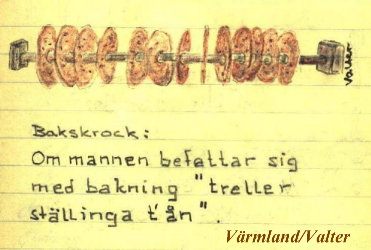 Valter
Bakskrock:
Om mannen befattar sig
med bakning "treller
ställinga t'ån".
Värmland/Valter